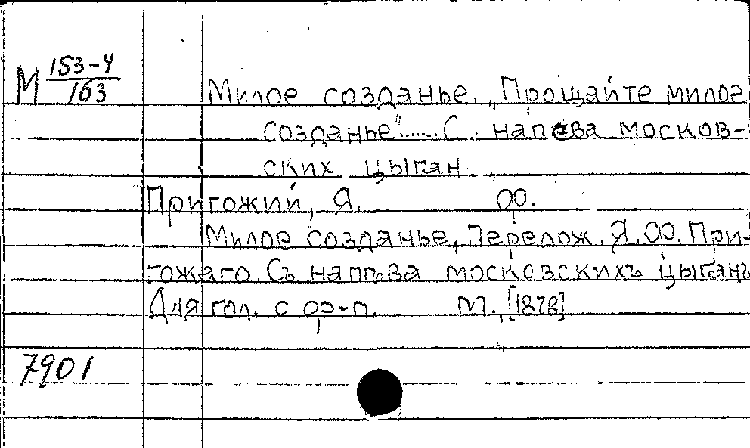 М 153-4/163
Милое созданье. „Прощайте милое
созданье“..... С напева москов-
ских цыган
Пригожий, Я. Ѳ.
Милое созданье, Перелож. Я. Ѳ. При-
гожаго. Съ напѣва московскихъ цыганъ
Для гол. с ф-п. М., [1878]
7901